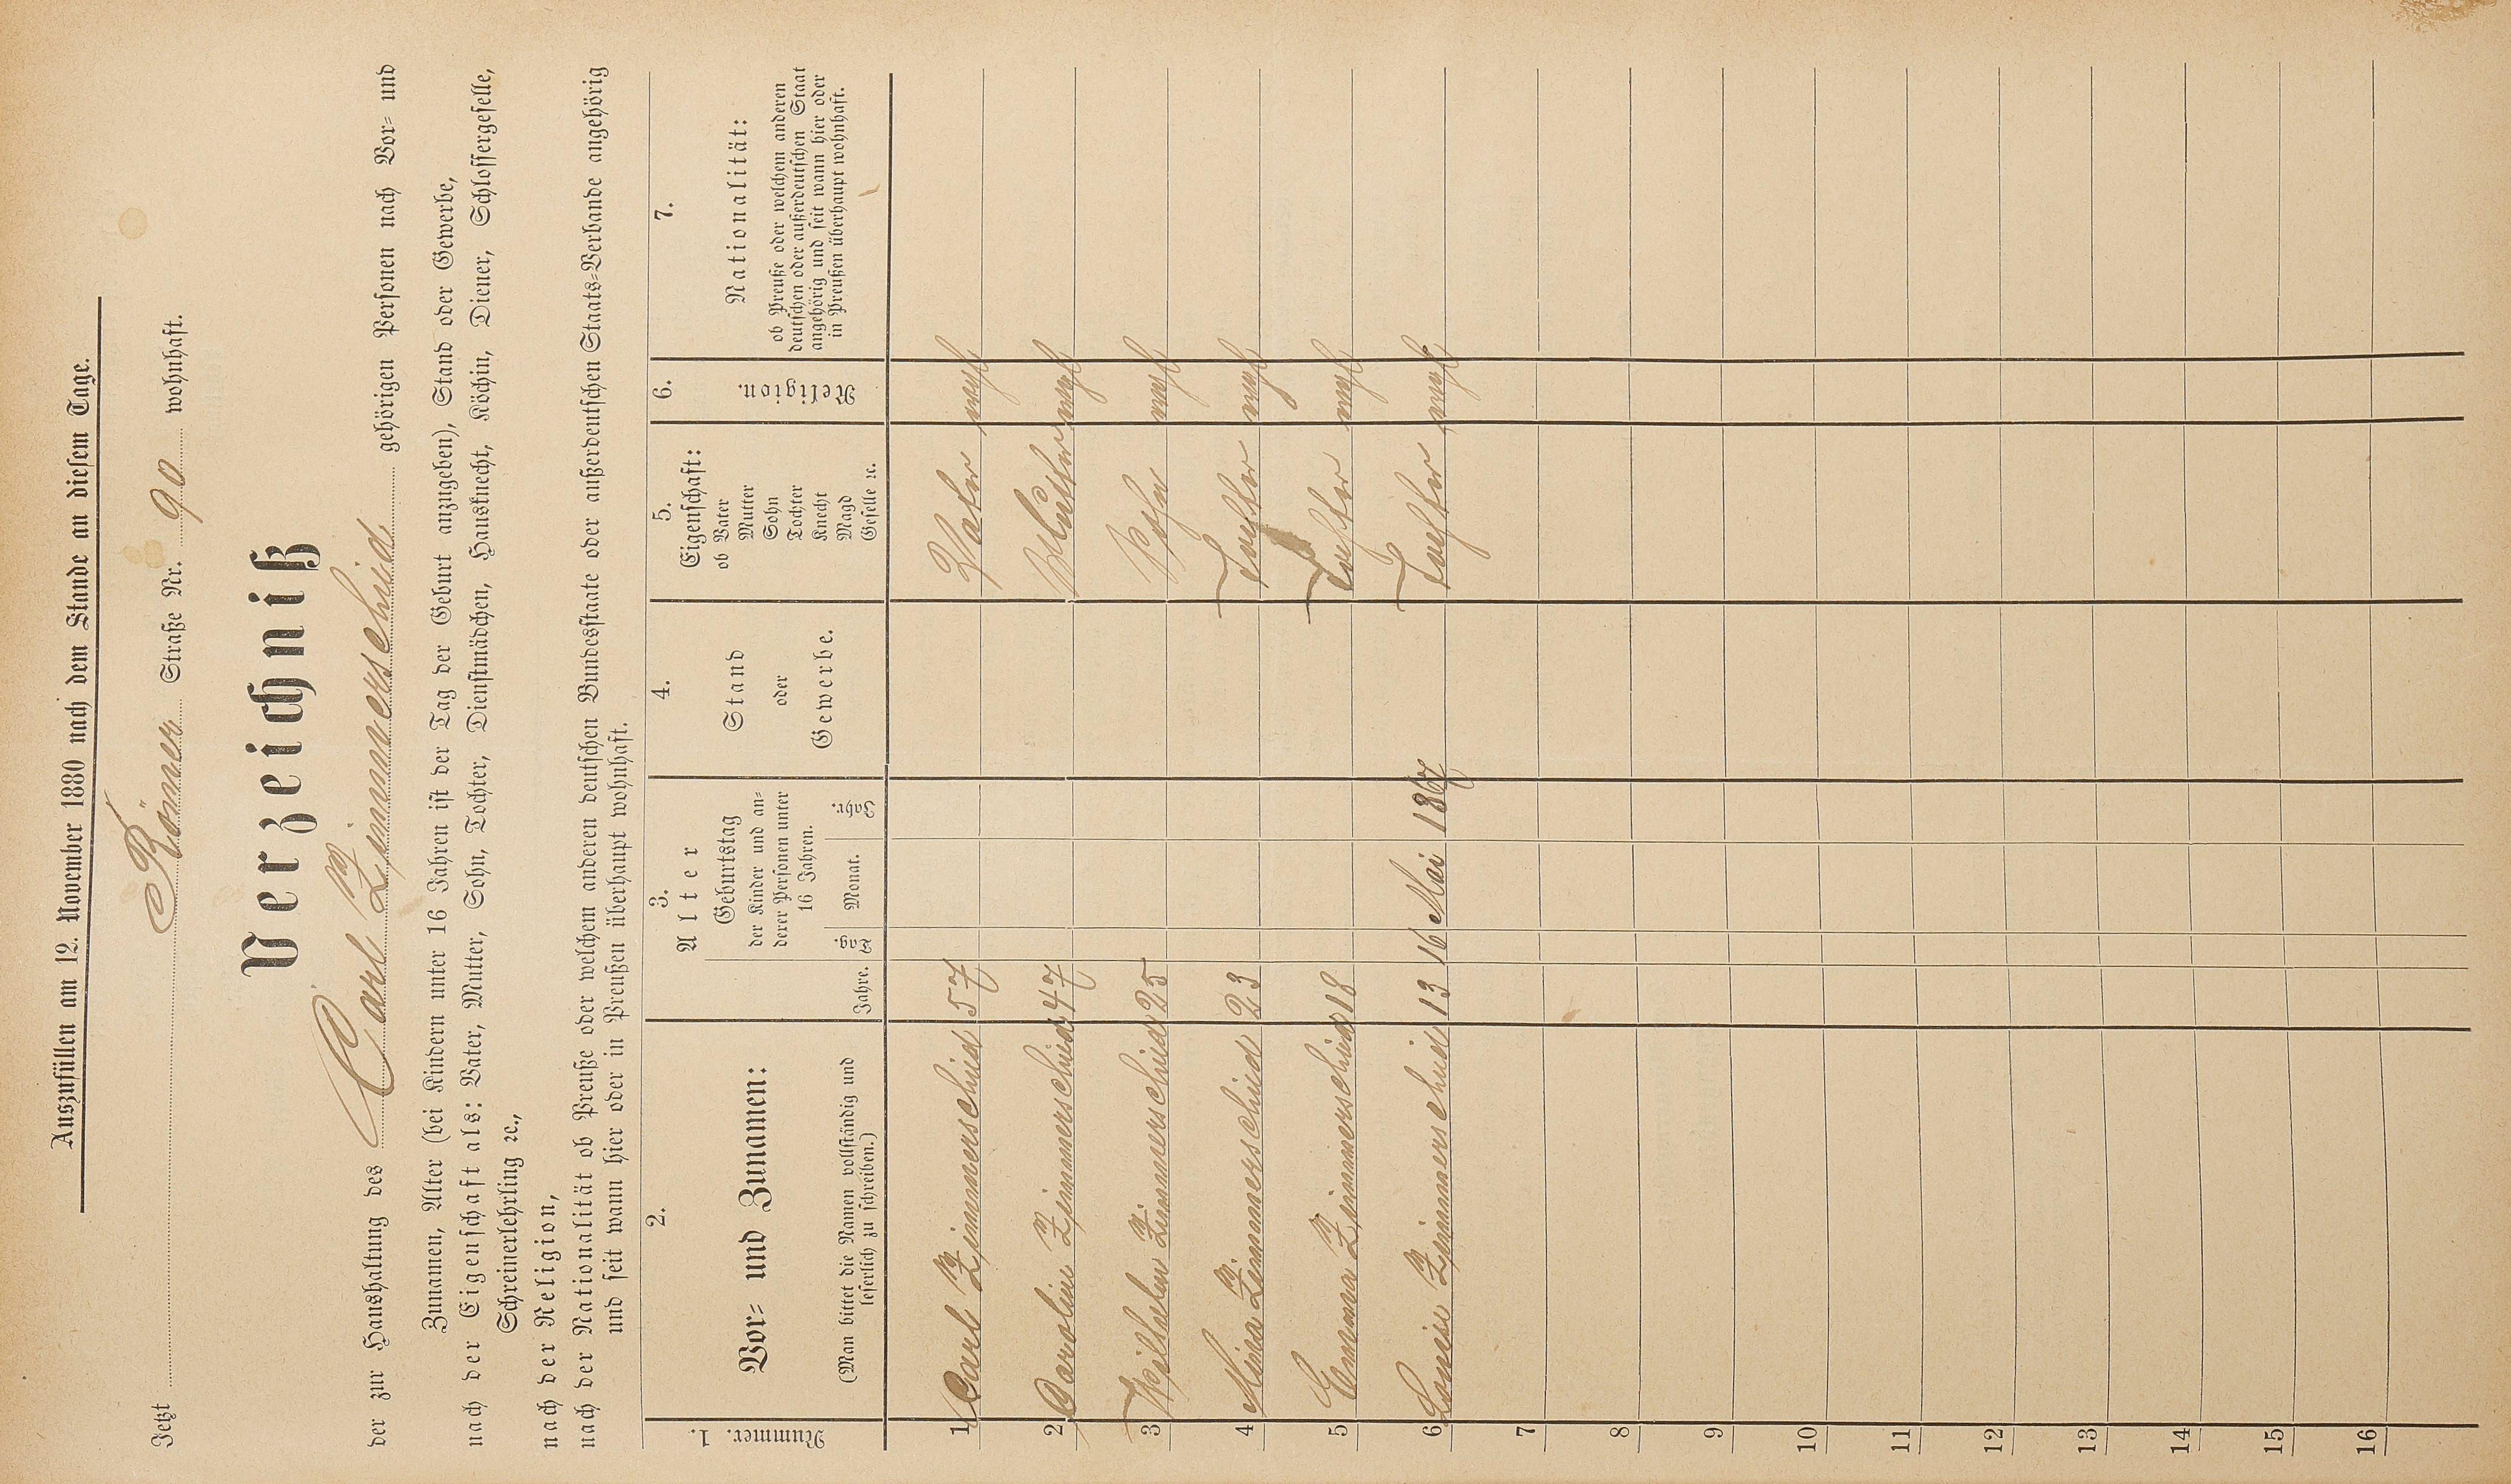 Auszufüllen am 12. November 1880 nach dem Stande an diesem Tage.
Jetzt Römer Straße Nr. 90 wohnhaft.
Verzeichniß
der zur Haushaltung des Carl Zimmerschied gehörigen Personen nach Vor- und
Zunamen, Alter (bei Kindern unter 16 Jahren ist der Tag der Geburt anzugeben), Stand oder Gewerbe,
nach der Eigenschaft als: Vater, Mutter, Sohn, Tochter, Dienstmädchen, Hausknecht, Köchin, Diener, Schlossergeselle,
Schreinerlehrling ꝛc.,
nach der Religion,
nach der Nationalität ob Preuße oder welchem anderen deutschen Bundesstaate oder außerdeutschen Staats-Verbande angehörig
und seit wann hier oder in Preußen überhaupt wohnhaft.
1. Nummer.
2.
Vor- und Zunamen:
(Man bittet die Namen vollständig und
leserlich zu schreiben.)
3.
Alter
Jahre.
Geburtstag
der Kinder und an-
derer Personen unter
16 Jahren.
Tag. Monat. Jahr.
4.
Stand
oder
Gewerbe.
5.
Eigenschaft:
ob Vater
Mutter
Sohn
Tochter
Knecht
Magd
Geselle ꝛc.
6.
Religion.
7.
Nationalität:
ob Preuße oder welchem anderen
deutschen oder außerdeutschen Staat
angehörig und seit wann hier oder
in Preußen überhaupt wohnhaft.
1 Carl Zimmerschied 57 Vater evgl
2 Carolin Zimmerschied 47 Mutter evgl
3 Wilhelm Zimmerschied 25 Sohn evgl
4 Mina Zimmerschied 23 Tochter evgl
5 Emma Zimmerschied 18 Tochter evgl
6 Louise Zimmerschied 13 16 Mai 1867 Tochter evgl
7
8
9
10
11
12
13
14
15
16